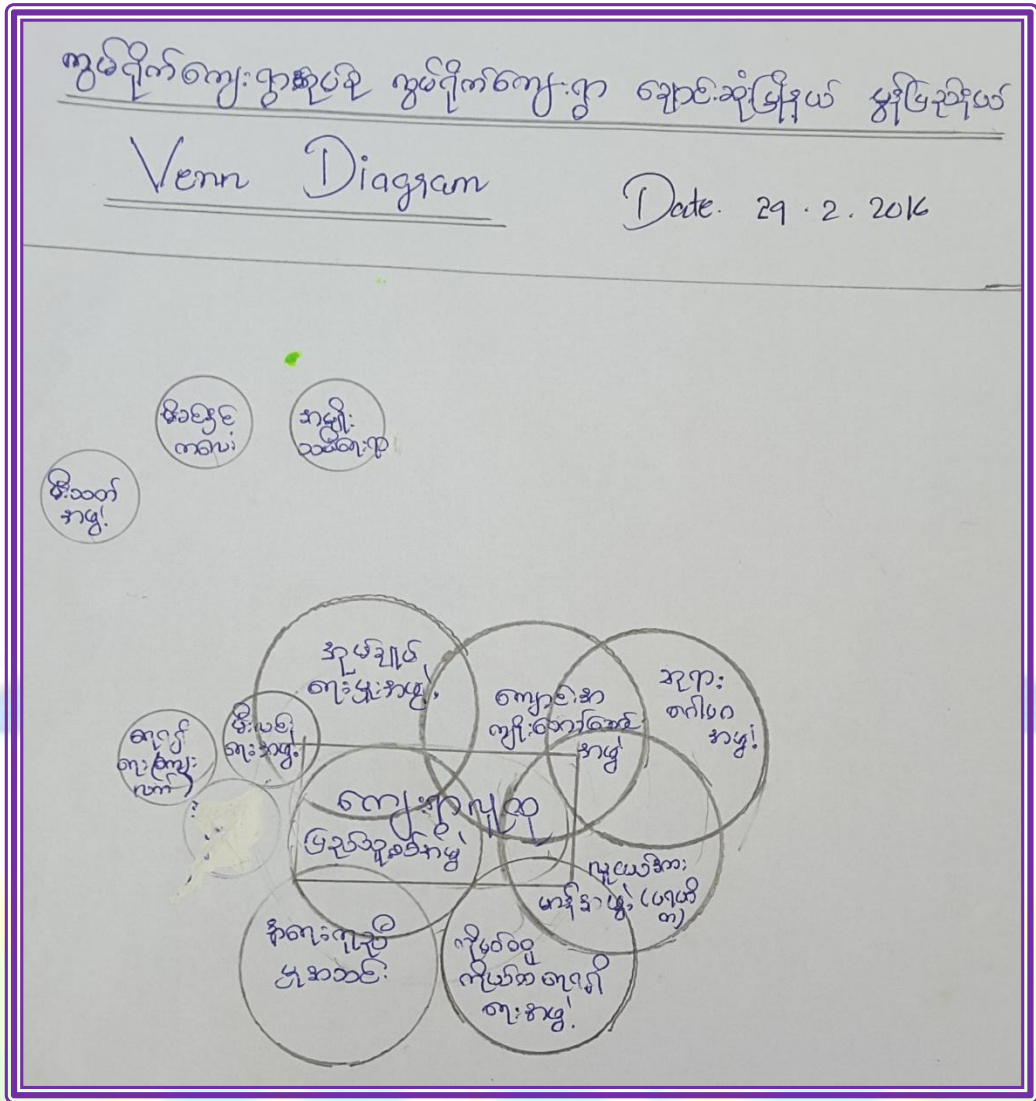 ကွမ်ရိုက်ကျေးရွာအုပ်စု ကွမ်ရိုက်ကျေးရွာ ချောင်းဆုံမြို့နယ် မွန်ပြည်နယ်
Venn Diagram
Date. 29.2.2016
မိခင်နှင့်
ကလေး
အမျိုး
သမီးရေးရာ
မီးသတ်
အဖွဲ့
အုပ်ချုပ်
ရေးမှူးအဖွဲ့
ကျောင်းအ
ကျိုးတော်ဆောင်
အဖွဲ့
ဘုရား
ဂေါပက
အဖွဲ့
မီးလင်း
ရေးအဖွဲ့
ကျေးရွာလူထု
ပြည်သူ့စစ်အဖွဲ့
လူငယ်အား
မာန်အဖွဲ့ (ပရဟိ
တ)
အရေးကူညီ
မှုအသင်း
ကိုယ့်ဝဝမ်း
ကိုယ်တာ
ရေးအဖွဲ့